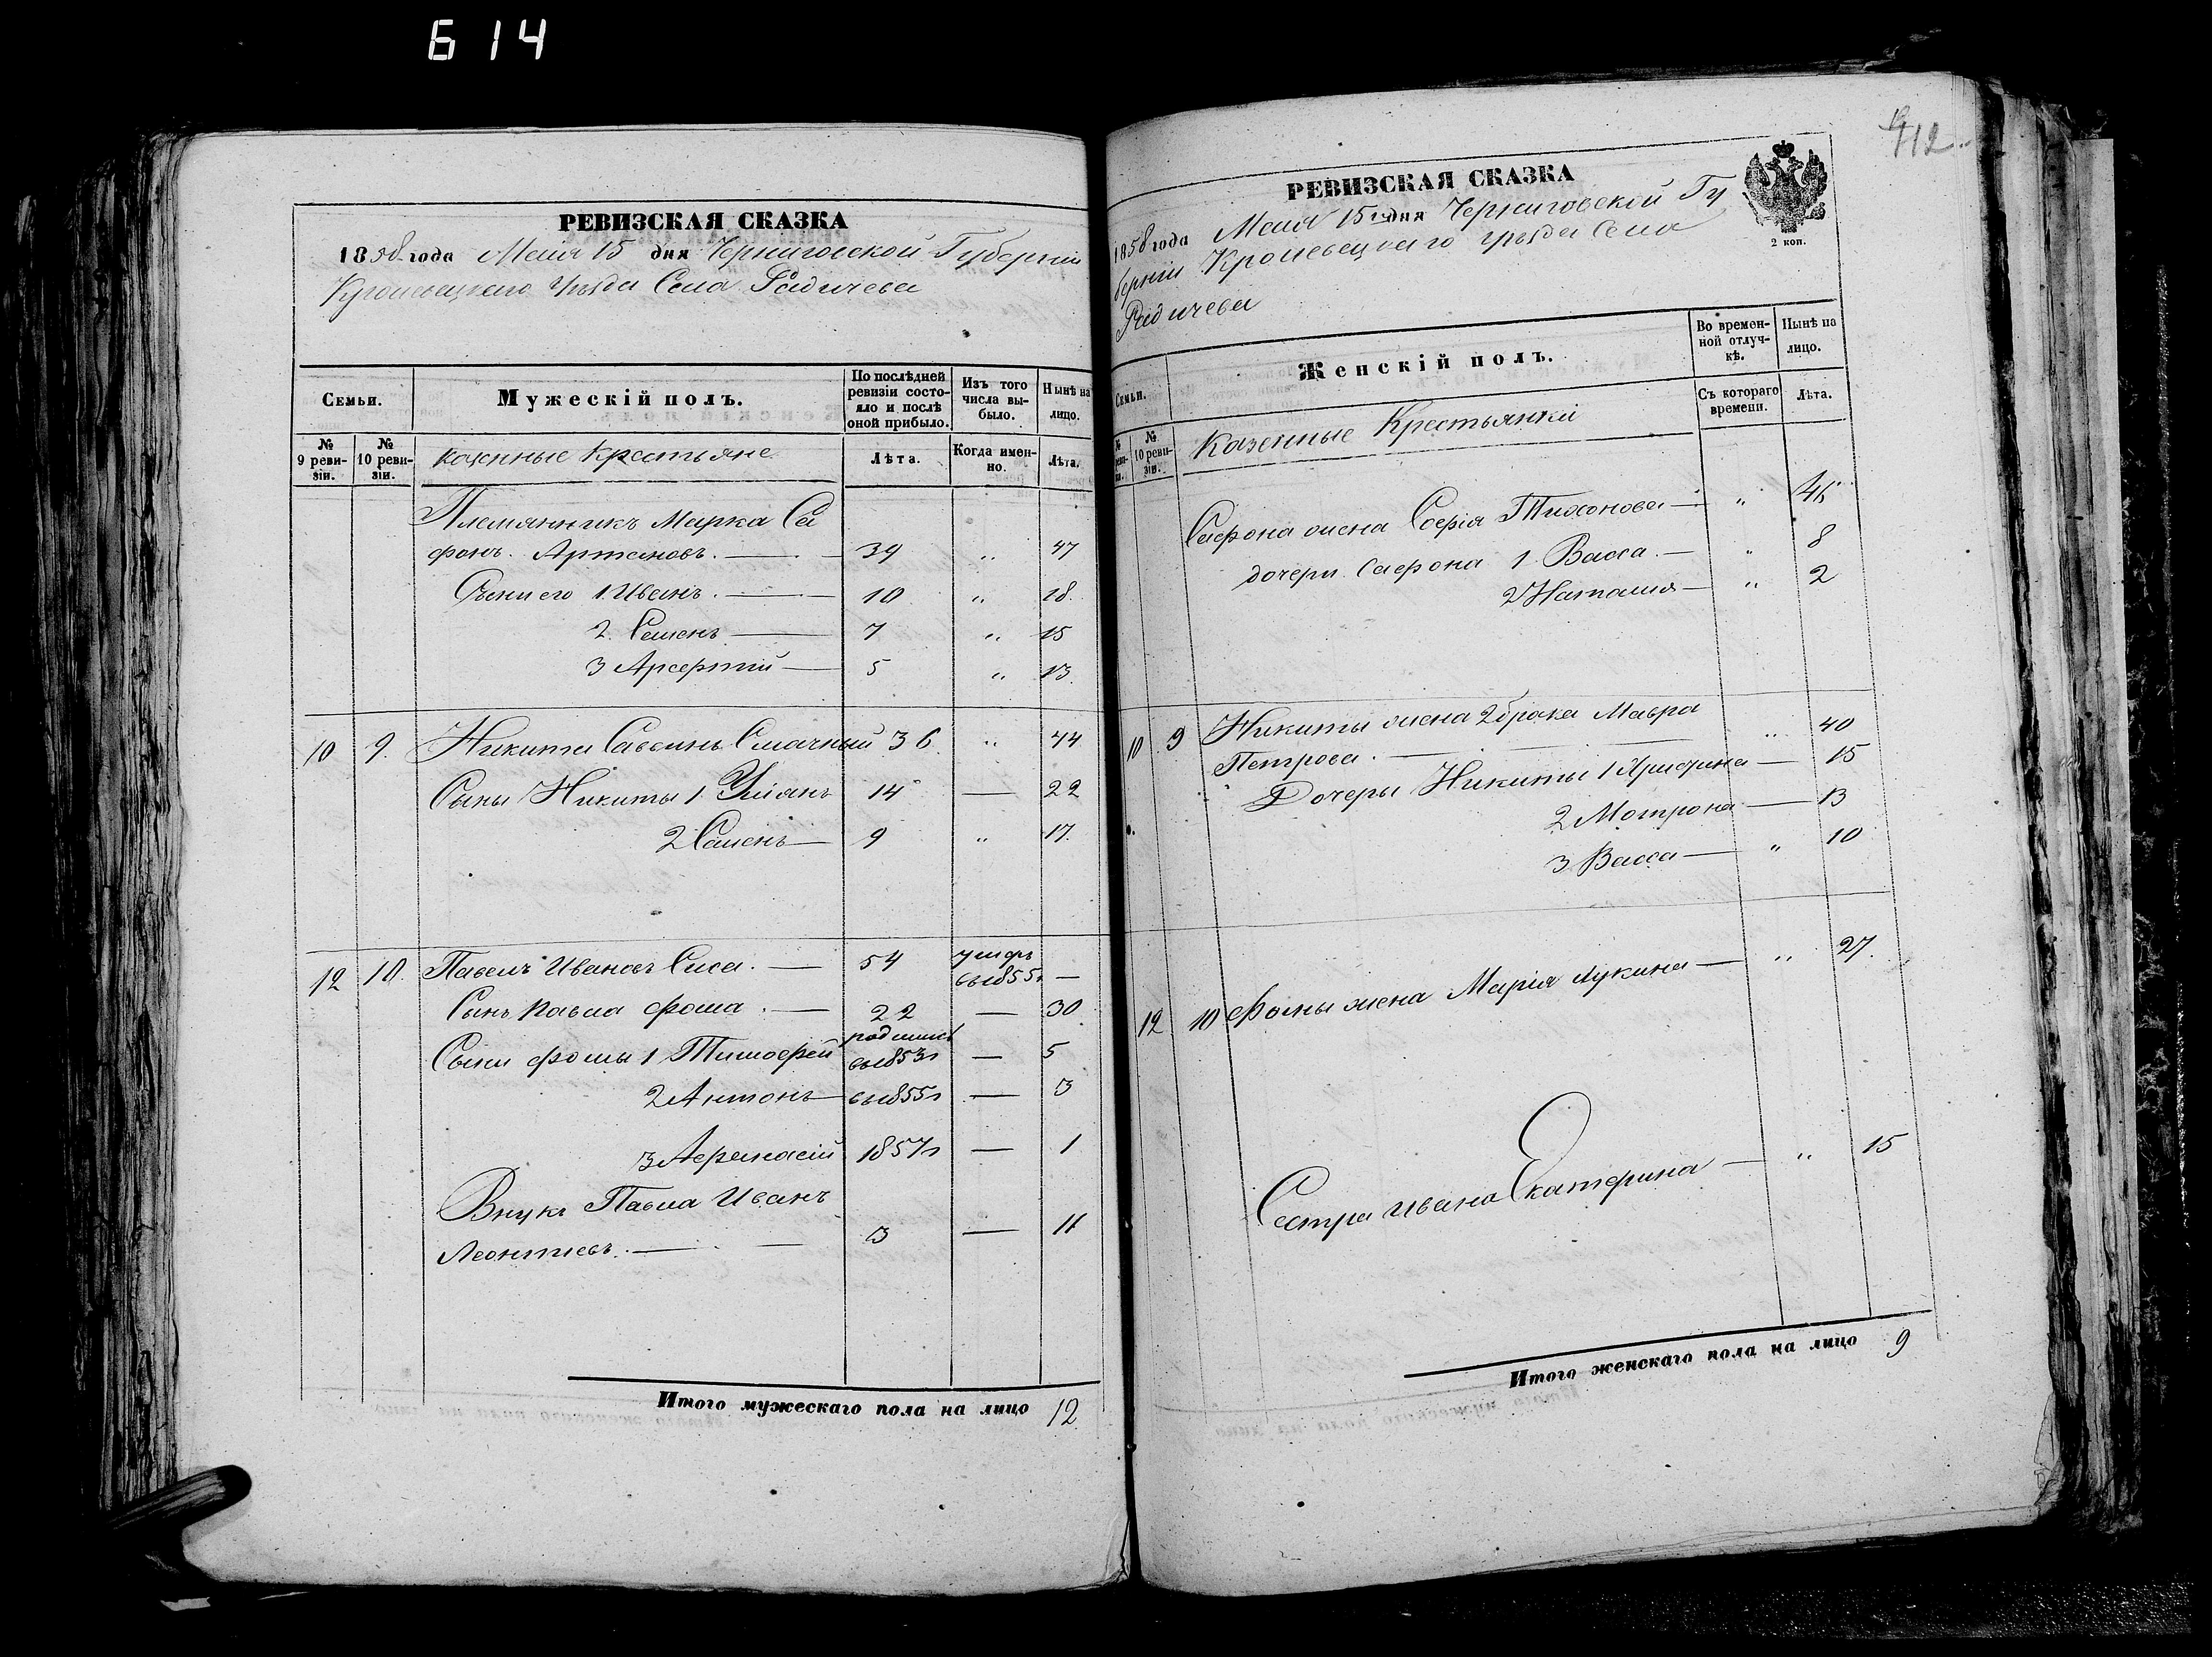 614
РЕВИЗСКАЯ СКАЗКА
1858 года Маія 15 дня Черниговской Губерніи
Кролевецкаго Уѣзда Села Радичева
Семьи.
Мужескій полъ.
По послѣдней ревизіи состояло и послѣ оной прибыло.
Изъ того числа выбыло.
Нынѣ на лицо.
№ 9 ревизіи.
№ 10 ревизіи.
казенные крестьяне
Лѣта.
Когда именно.
Лѣта.
Племянникъ Марка Са
фонъ Артемовъ. 39 " 47
Сыни его 1 Иванъ. 10 " 18.
2. Семенъ 7 " 15
3 Арсентій 5 " 13.
10 9. Никита Саввинъ 36. " 44
Сыны Никиты 1 14 — 22
2 Семенъ 9 " 17.
12 10. Павелъ Ивановъ Сиса. 54 умеръ
въ 1855г —
Сынъ Павла Фома. 22 — 30
Сыни Фомы 1 Тимофей родился
въ 1853г — 5
2 Антонъ въ 1855г — 3
3 Афанасій 1857г — 1
Внукъ Павла Иванъ
Леонтіевъ. 3 — 11
Итого мужескаго пола на лицо 12
412
РЕВИЗСКАЯ СКАЗКА
1858 года Маія 15 дня Черниговской Гу
берніи Кролевецкаго Уѣзда Села
Радичева
2 коп.
Семьи.
Женскій полъ.
Во временной отлучкѣ.
Нынѣ на лицо.
№ 10 ревизіи.
Казенные Крестьянки
Съ котораго времени.
Лѣта.
Сафона жена Софія Тихонова "
дочери Сафона 1 Васса. " 8
2 Наталия " 2
10 9 Никиты жена 2 брака Мавра
Петрова. " 40
Дочеры Никиты 1 — 15
2 Мотрона — 13
3 Васса " 10
12 10 Фомы жена Марія Лукина " 27.
Сестра Ивана Екатерина " 15
Итого женскаго пола на лицо 9